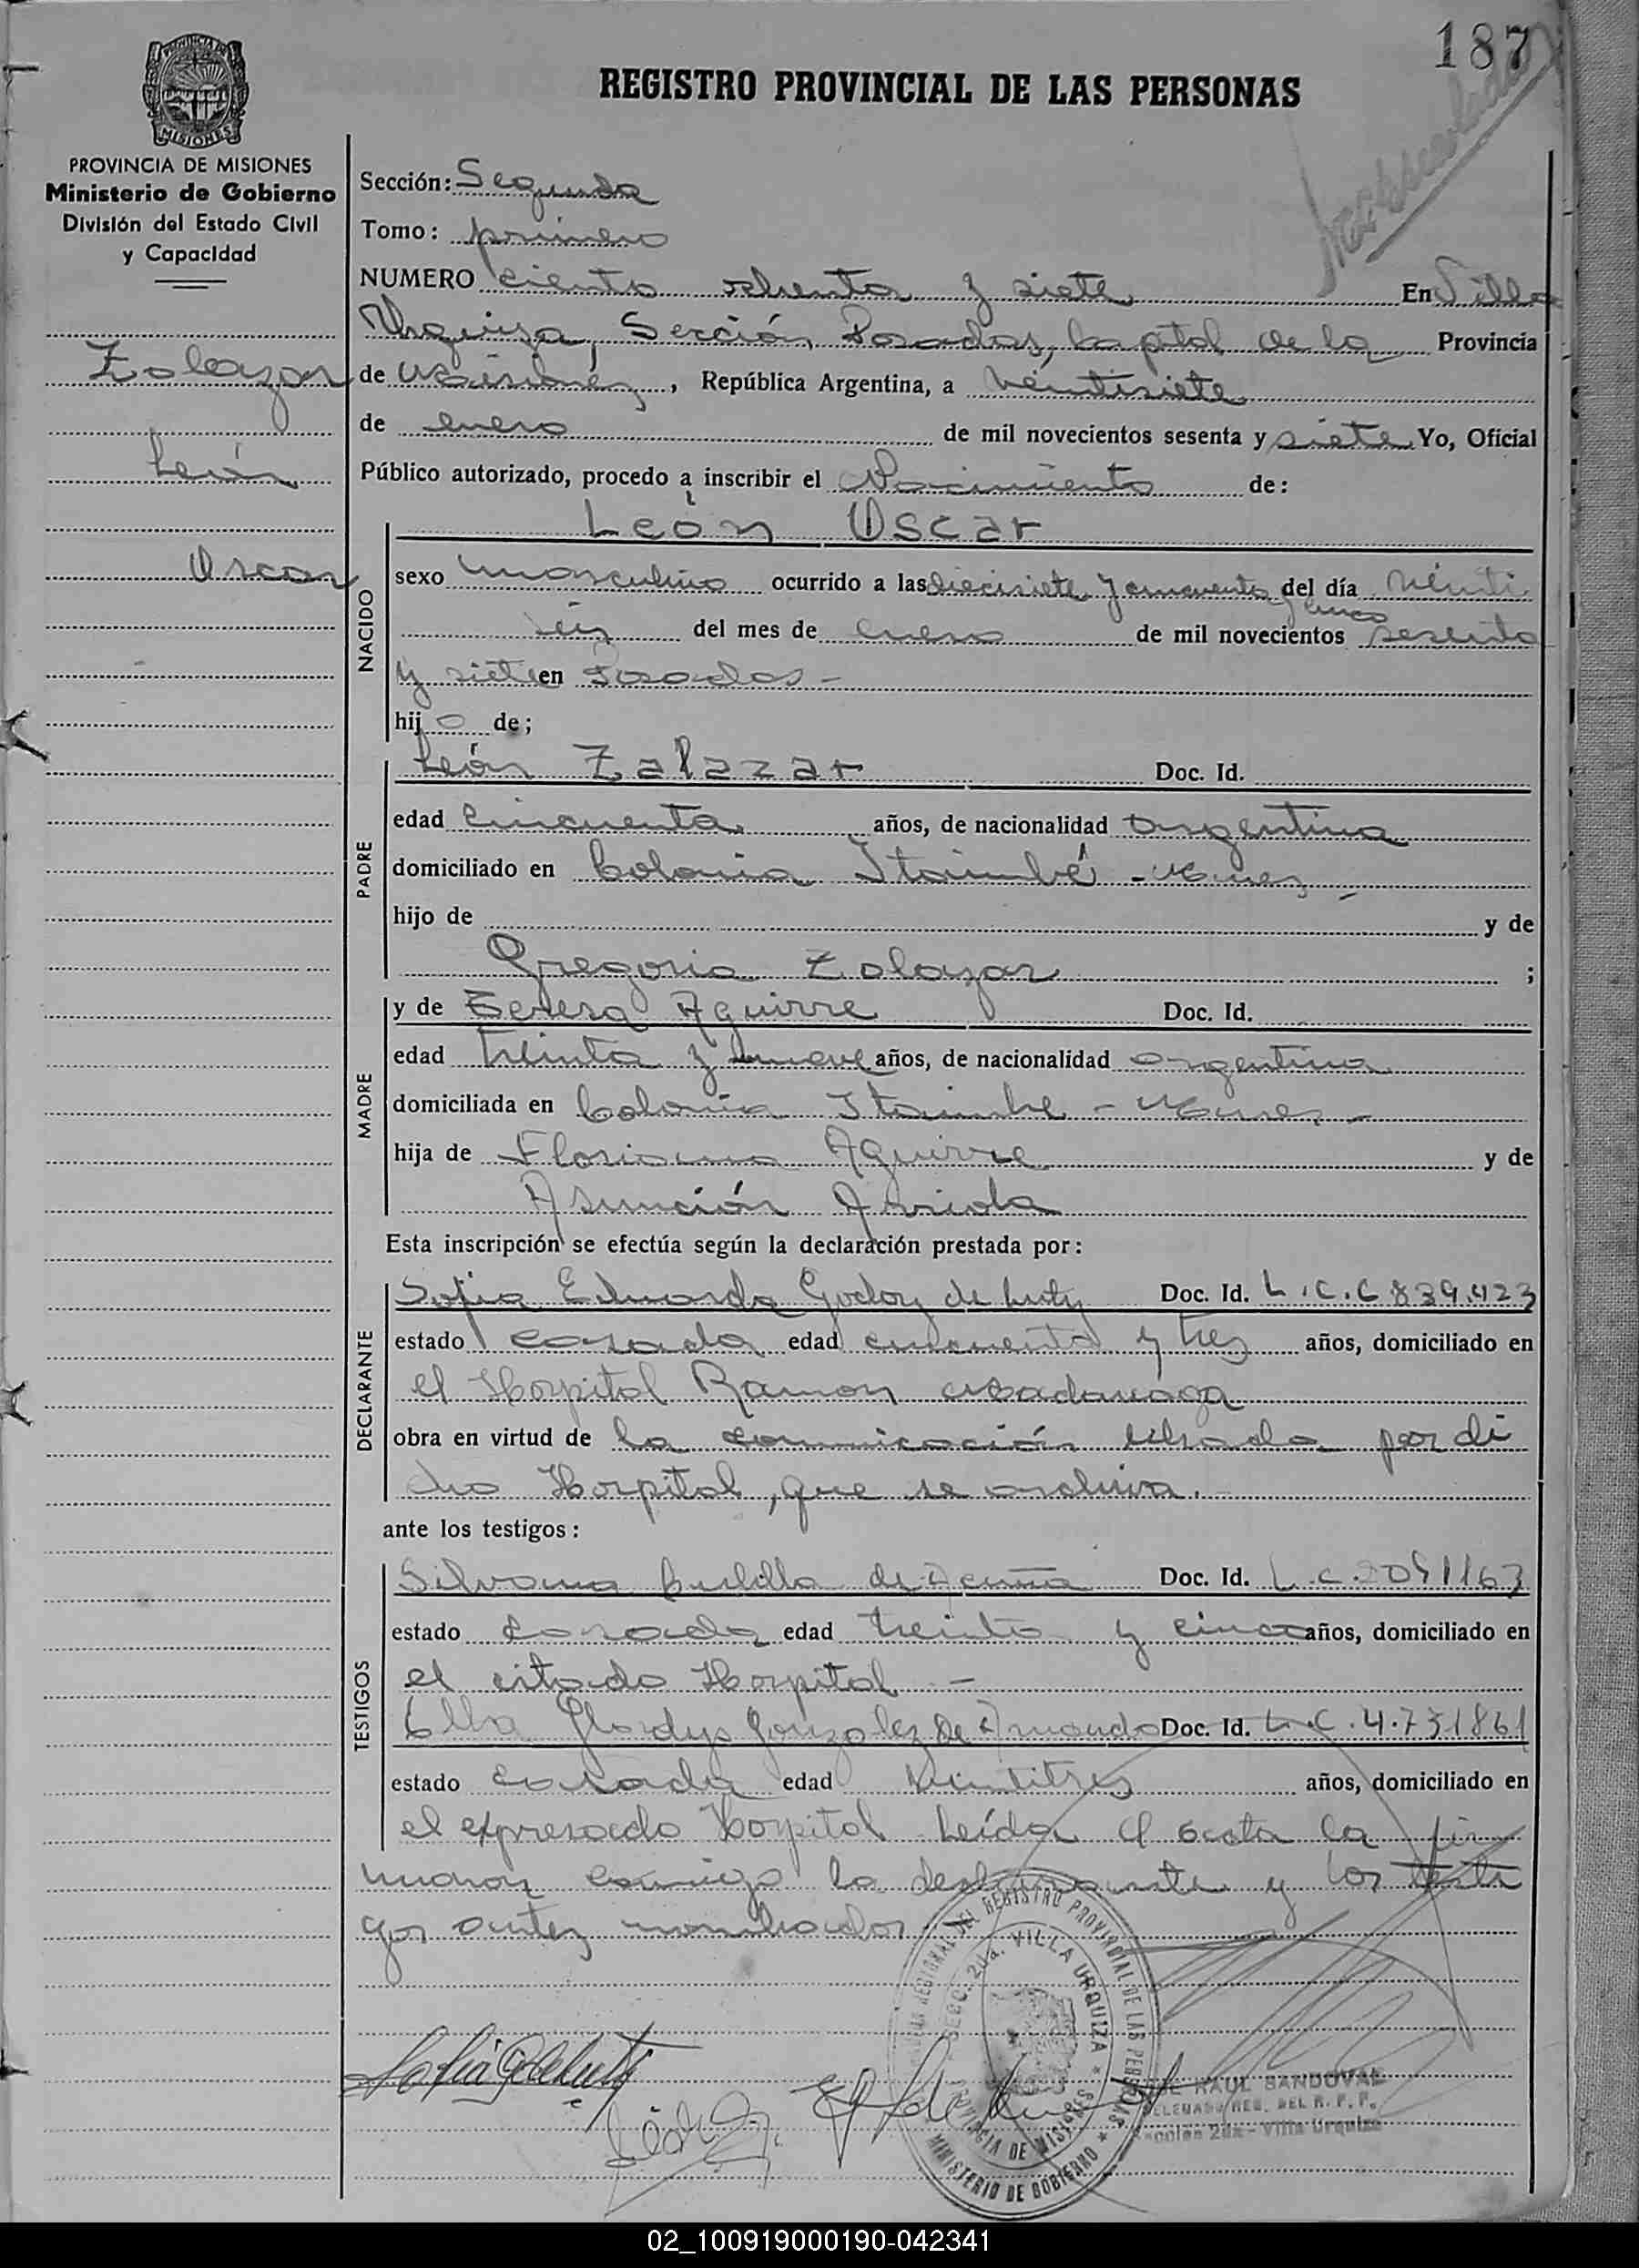 187
REGISTRO PROVINCIAL DE LAS PERSONAS
MISIONES
PROVINCIA DE MISIONES
Ministerio de Gobierno
División del Estado Civil
y Capacidad
Zalazar
León
Oscar
Sección: Segunda
Tomo: primero
NUMERO ciento ochenta y siete En Villa
Urquiza, Sección Posadas, Capital de la Provincia
de Misiones, República Argentina, a veintisiete
de enero de mil novecientos sesenta y siete Yo, Oficial
Público autorizado, procedo a inscribir el Nacimiento de:
León Oscar
NACIDO
sexo masculino ocurrido a las diecisiete y cincuenta y cinco del día veinti
séis del mes de enero de mil novecientos sesenta
y siete en Posadas -
hijo de;
PADRE
León Zalazar Doc. Id.
edad cincuenta años, de nacionalidad argentina
domiciliado en Colonia Itaimbé - Mnes -
hijo de y de
Gregoria Zalazar ;
MADRE
y de Teresa Aguirre Doc. Id.
edad treinta y nueve años, de nacionalidad argentina
domiciliada en Colonia Itaimbe - Mnes -
hija de Floriana Aguirre y de
Asunción Arriola
Esta inscripción se efectúa según la declaración prestada por:
DECLARANTE
Sofia Eduarda Godoy de Doc. Id. L.C. 6839.423
estado casada edad cincuenta y tres años, domiciliado en
el Hospital Ramon Madariaga
obra en virtud de la comunicación librada por di
cho Hospital, que se archiva.
ante los testigos:
TESTIGOS
Silvana de Acuña Doc. Id. L.C.
estado casada edad treinta y cinco años, domiciliado en
el citado Hospital -
Elba Gladys Gonzalez de Doc. Id. L.C. 4.731861
estado casada edad veintitres años, domiciliado en
el expresado Hospital Leída el acta la fir
maron conmigo la declarante y los testi
gos antes nombrados
REGIONAL DEL REGISTRO PROVINCIAL DE LAS PERSONAS
SECC. 2da. VILLA URQUIZA
PROVINCIA DE MISIONES
MINISTERIO DE GOBIERNO
RAUL SANDOVAL
DELEGADO REG. DEL R. P. P.
2da - Villa Urquiza
02_100919000190-042341